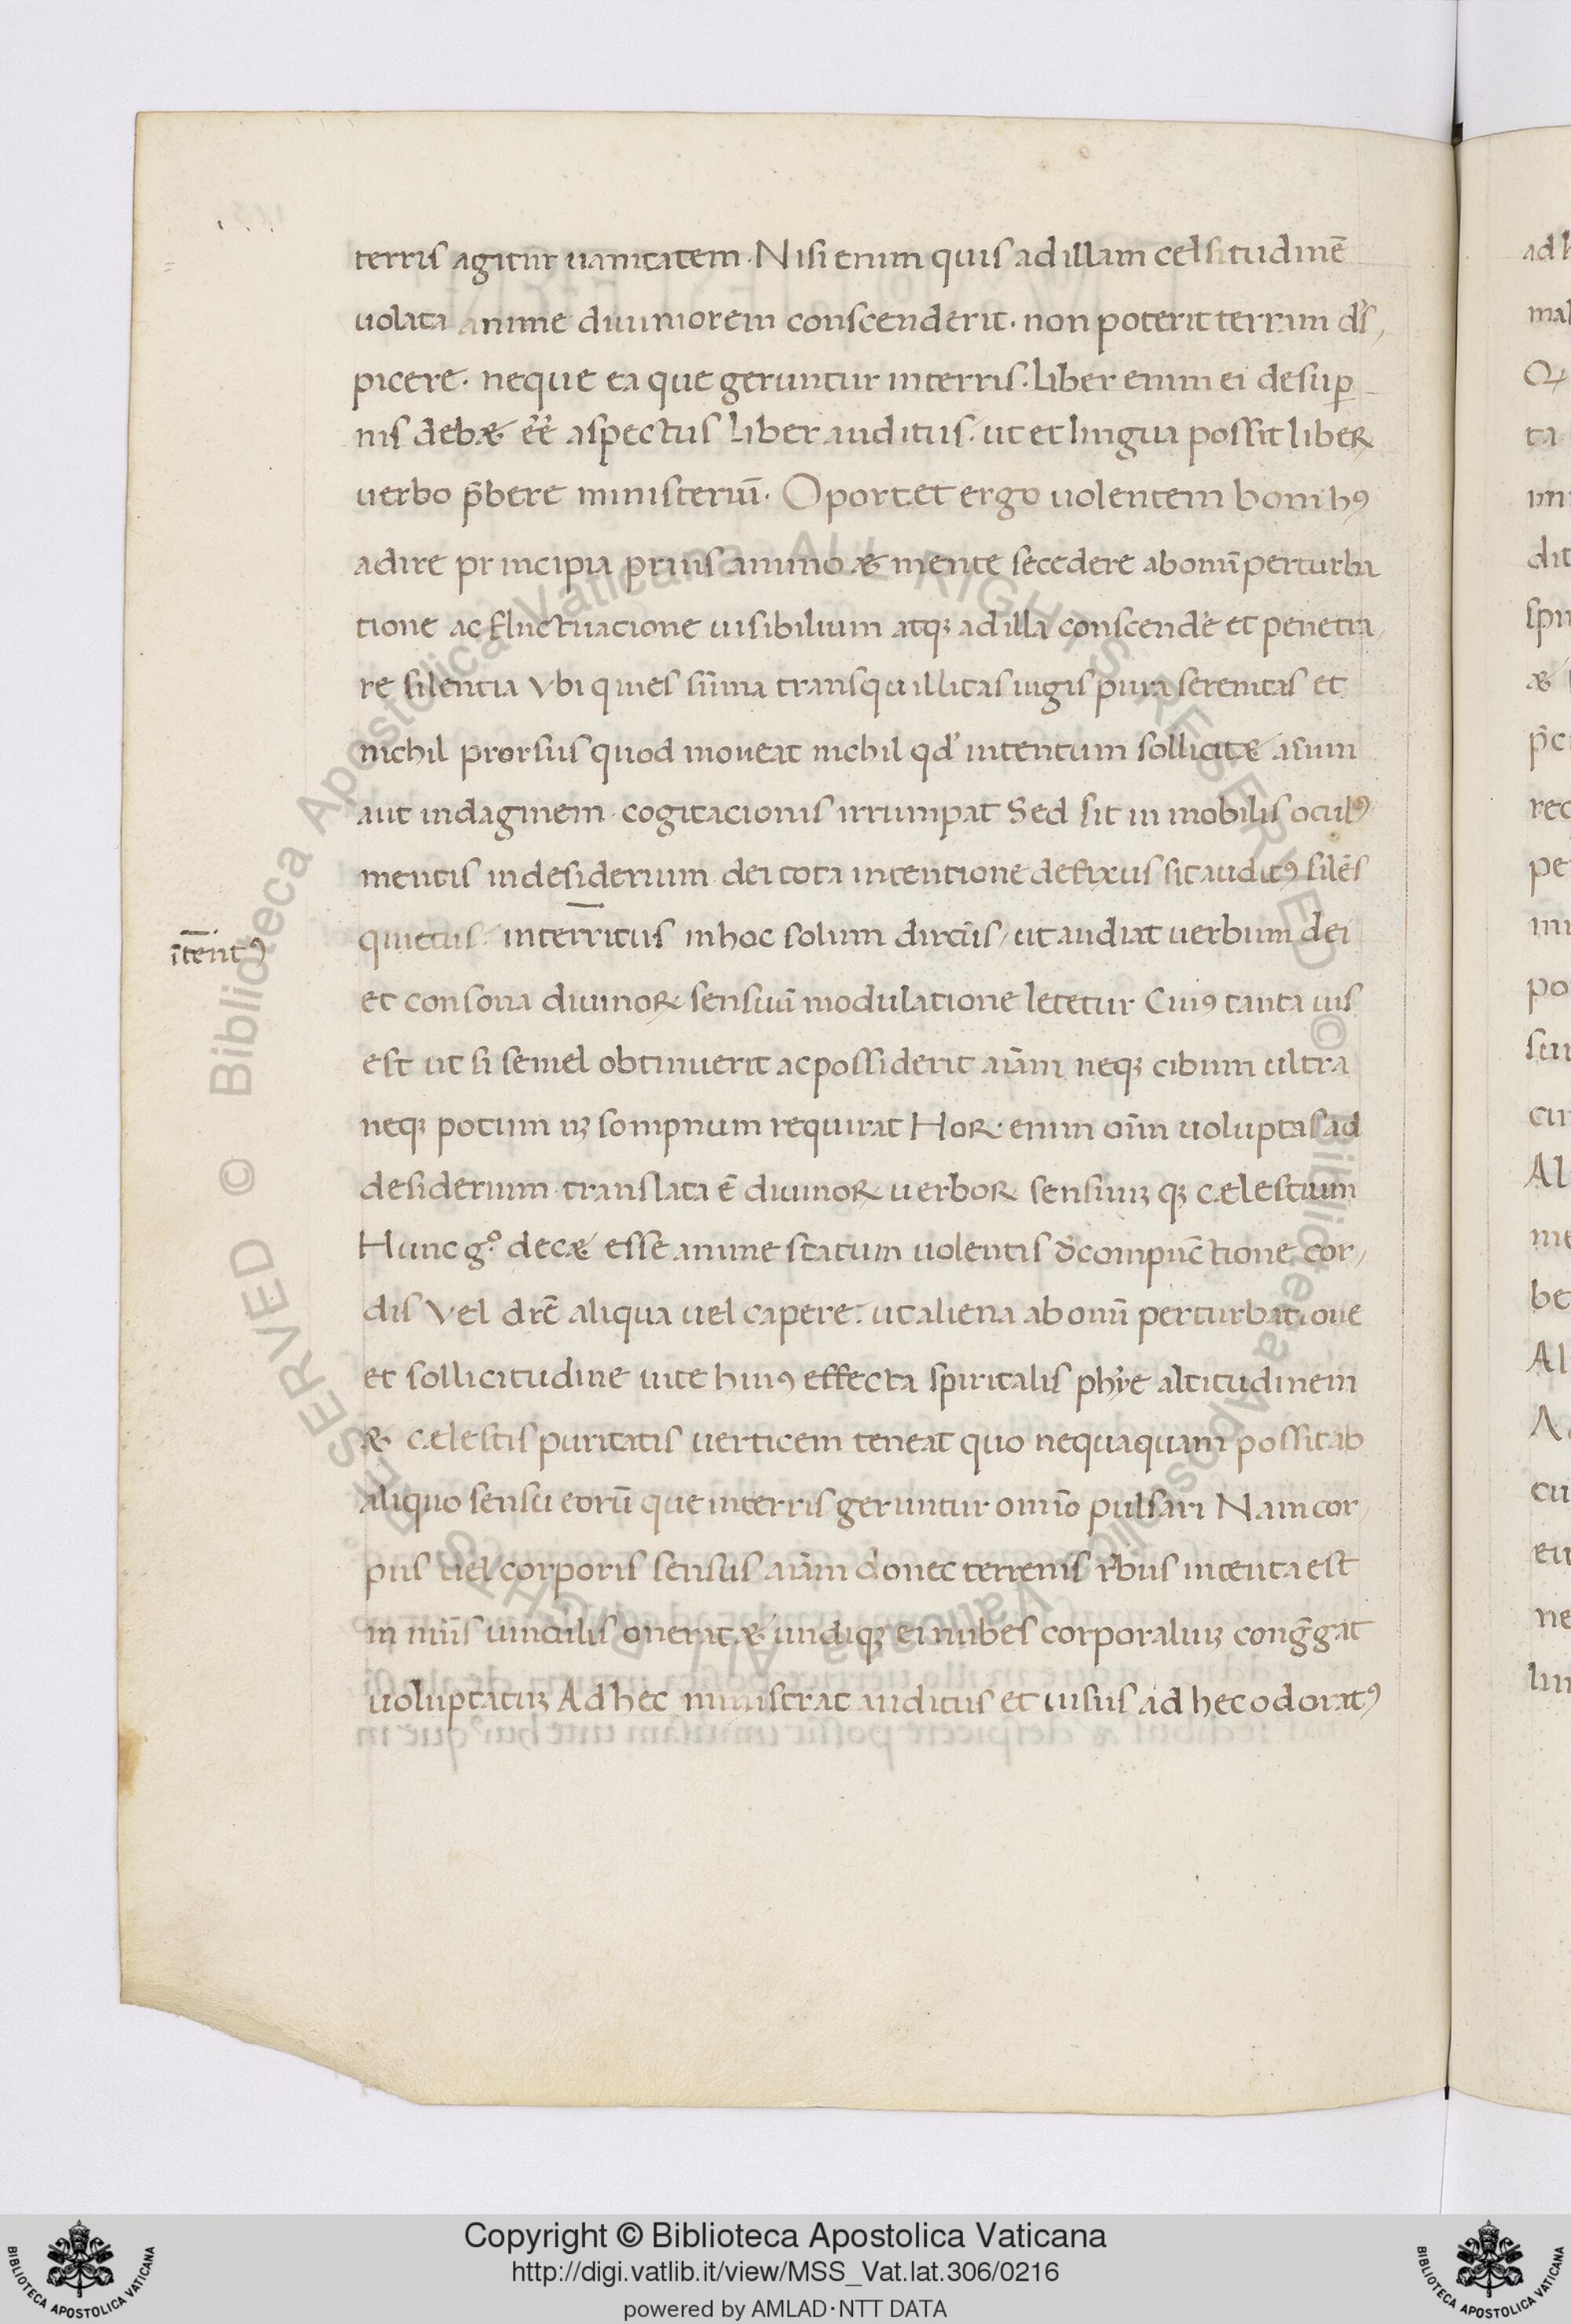 terris agitur uanitatem. Nisi enim quis ad illam celsitudinē
uolatu anime diuiniorem conscenderit. non poterit terram ds̄,
picere. neque ea que geruntur in terris. Liber enim ei desup̱
nis debæ ēē aspectus Liber auditus. ut et lingua possit libeR
uerbo p̄bere ministeriū. Oportet ergo uolentem bonibꝰ
adire principia prius animo & mente secedere ab omī perturba
tione ac fluctuacione uisibilium atqꝫ ad illa conscendē et penetra,
re silentia Vbi quies sūma transquillitas iugis pura serenitas et
nichil prorsus quod moueat nichil qd' intentum sollicitæ asum
aut indaginem. cogitacionis irrumpat Sed sit in mobilis oculꝰ
mentis in desiderium dei tota intentione defixus sit auditꝰ silēs
quietus. interritus in hoc solum ut audiat uerbum dei
ītentꝰ
et consona diuinoꝝ sensuū modulatione letetur Cuiꝰ tanta uis
est ut si semel obtinuerit ac possiderit aīam neqꝫ cibum ultra
neqꝫ potum nꝫ sompnum requirat Hoꝝ enim oīm uoluptas ad
desiderium translata ē diuinoꝝ uerboꝝ sensuuꝫ qꝫ cælestium
Hunc g° decæ esse anime statum uolentis d̄ compunctione cor,
dis Vel dicē aliqua uel capere. ut aliena ab omī perturbatione
et sollicitudine uite huiꝰ effecta spiritalis phye altitudinem
& cælestis puritatis uerticem teneat quo nequaquam possit ab
aliquo sensu eorū que in terris geruntur omīo pulsari Nam cor,
pus uel corporis sensus aīam donec terrenis rbus intenta est
in miīs uinculis onerat & undiqꝫ ei nubes corporaliuꝫ cong̅gat
uoluptatuꝫ Ad hec ministrat auditus et uisus ad hec odoratꝰ
Copyright © Biblioteca Apostolica Vaticana
http://digi.vatlib.it/view/MSS_Vat.lat.306/0216
powered by AMLAD·NTT DATA